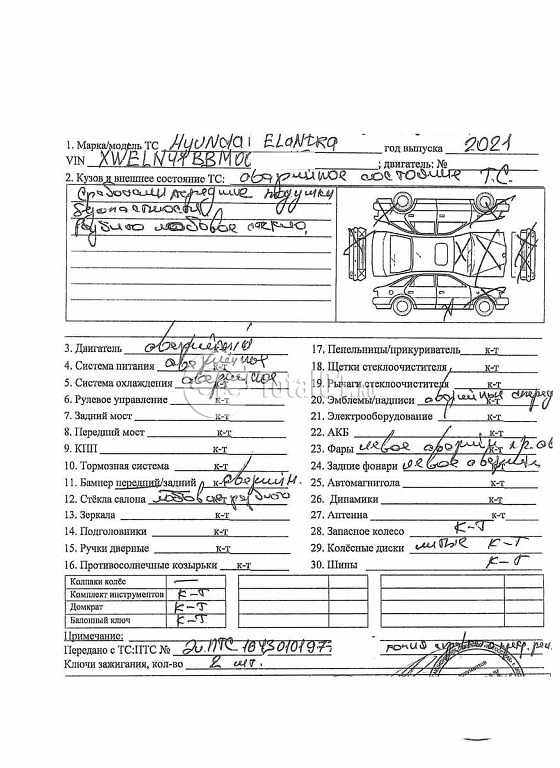 1. Марка/модель ТС Hyundai ELantra год выпуска 2021
VIN XWELN41BBM0C ; двигатель: №
2. Кузов и внешнее состояние ТС: аварийное состояние Т.С.
Сработали передние подушки
безопасности,
разбито лобовое стекло,
3. Двигатель аварийный к-т
4. Система питания аварийное к-т
5. Система охлаждения аварийное к-т
6. Рулевое управление к-т
7. Задний мост к-т
8. Передний мост к-т
9. КПП к-т
10. Тормозная система к-т
11. Бампер передний/задний к-т аварийн.
12. Стёкла салона лобовое разбито к-т
13. Зеркала к-т
14. Подголовники к-т
15. Ручки дверные к-т
16. Противосолнечные козырьки к-т
17. Пепельницы/прикуриватель к-т
18. Щетки стеклоочистителя к-т
19. Рычаги стеклоочистителя к-т
20. Эмблемы/надписи аварийные перед
21. Электрооборудование к-т
22. АКБ к-т
23. Фары левое аварийн пр. ав
24. Задние фонари левое аварийн
25. Автомагнитола к-т
26. Динамики к-т
27. Антенна к-т
28. Запасное колесо к-т
29. Колёсные диски литые к-т
30. Шины к-т
Колпаки колёс —
Комплект инструментов к-т
Домкрат к-т
Балонный ключ к-т
Примечание:
Передано с ТС:ПТС № Эл. ПТС копия
Ключи зажигания, кол-во 2 шт.